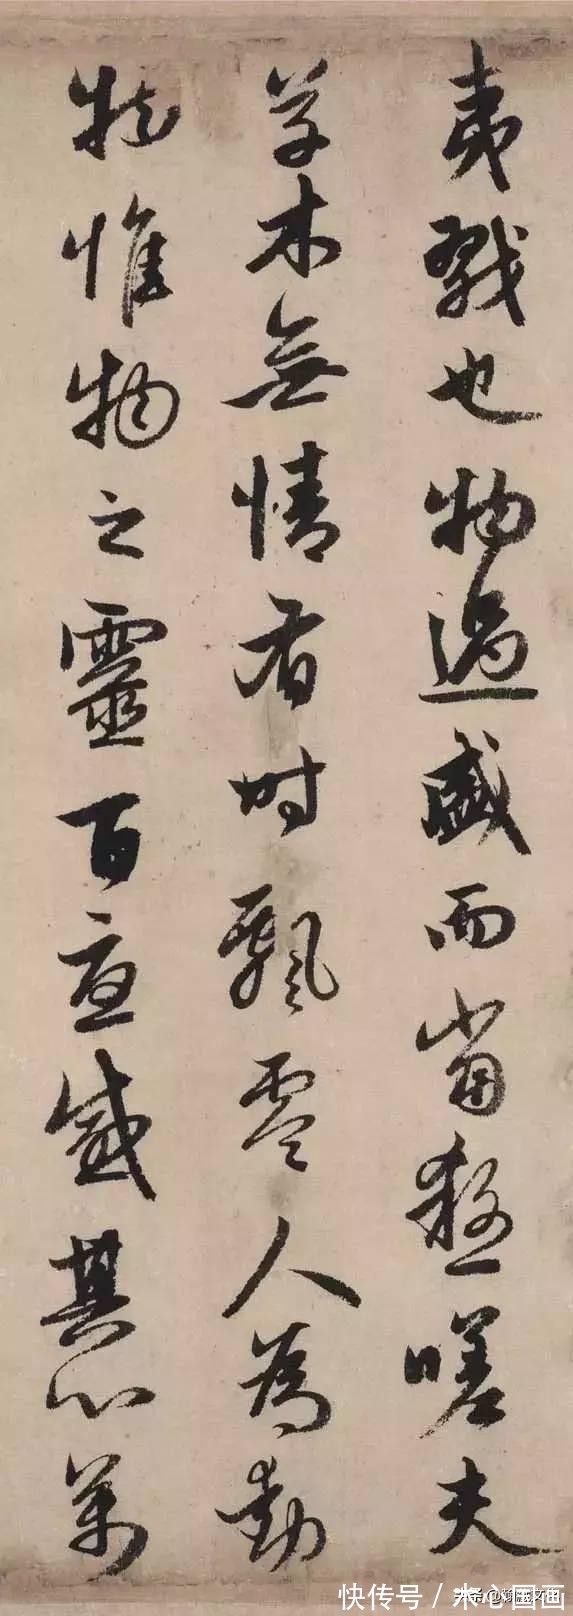 夷戮也物過盛而當殺嗟夫
草木無情有时飄零人為動
物惟物之靈百憂感其心萬
快传号 / 木心国画